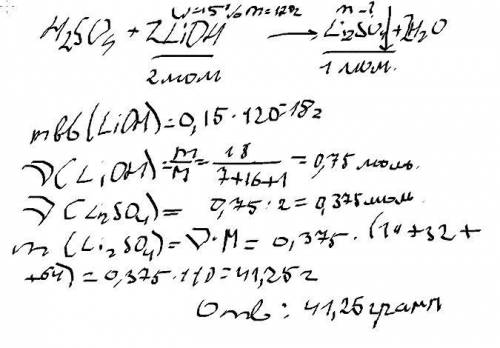 ω=15% m=120г n-?
H₂SO₄ + 2LiOH → Li₂SO₄↓ + 2H₂O
2 мол 1 мол.
m вв (LiOH) = 0,15·120=18г
ν(LiOH) = m/M = 18/(7+16+1) = 0,75 моль.
ν(Li₂SO₄) = 0,75:2 = 0,375 мол.
m (Li₂SO₄) = ν·M = 0,375·(14+32+
+64) = 0,375·110 = 41,25г
Отв: 41,25грамм